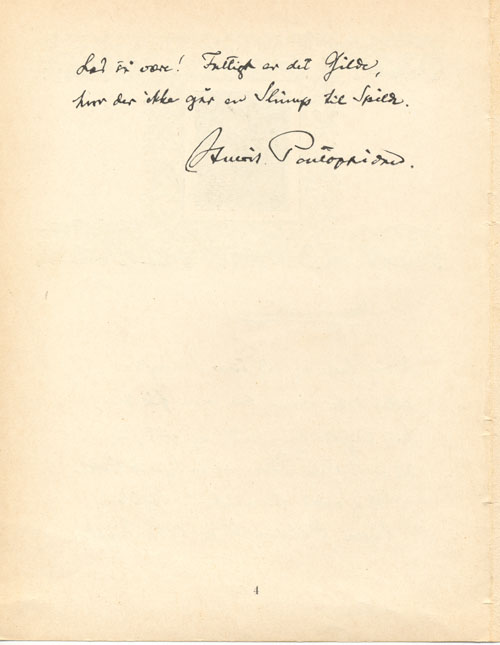 Lad så være! Fattigt er det Gilde,
hvor der ikke går en Slump til Spilde.
Henrik Pontoppidan.
4